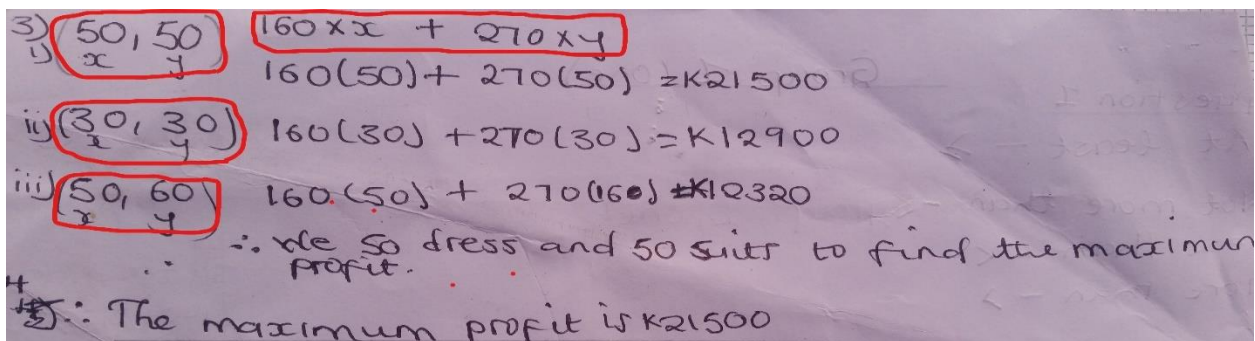 3) i) (50, 50) 160 × x + 270 × y
x y
160(50) + 270(50) = K21500
ii) (30, 30) 160(30) + 270(30) = K12900
x y
iii) (50, 60) 160(50) + 270(160) = K12320
x y
∴ We 50 dress and 50 suits to find the maximum
profit.
4
∴ The maximum profit is K21500